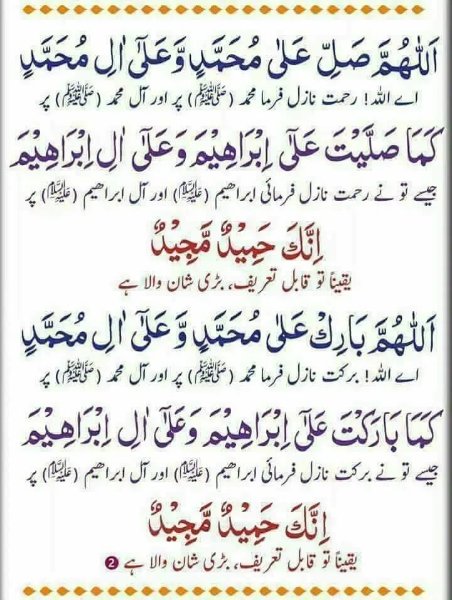 اَللّٰهُمَّ صَلِّ عَلٰی مُحَمَّدٍ وَّعَلٰٓی اٰلِ مُحَمَّدٍ
اے اللہ! رحمت نازل فرما محمد (ﷺ) پر اور آل محمد (ﷺ) پر
كَمَا صَلَّيْتَ عَلٰٓی اِبْرَاهِيْمَ وَعَلٰٓی اٰلِ اِبْرَاهِيْمَ
جیسے تو نے رحمت نازل فرمائی ابراھیم (علیہ السلام) اور آل ابراھیم (علیہ السلام) پر
اِنَّكَ حَمِيْدٌ مَّجِيْدٌ
یقیناً تو قابل تعریف، بڑی شان والا ہے
اَللّٰهُمَّ بَارِكْ عَلٰی مُحَمَّدٍ وَّ عَلٰٓی اٰلِ مُحَمَّدٍ
اے اللہ! برکت نازل فرما محمد (ﷺ) پر اور آل محمد (ﷺ) پر
كَمَا بَارَكْتَ عَلٰٓی اِبْرَاهِيْمَ وَعَلٰٓی اٰلِ اِبْرَاهِيْمَ
جیسے تو نے برکت نازل فرمائی ابراھیم (علیہ السلام) اور آل ابراھیم (علیہ السلام) پر
اِنَّكَ حَمِيْدٌ مَّجِيْدٌ
یقیناً تو قابل تعریف، بڑی شان والا ہے ❷